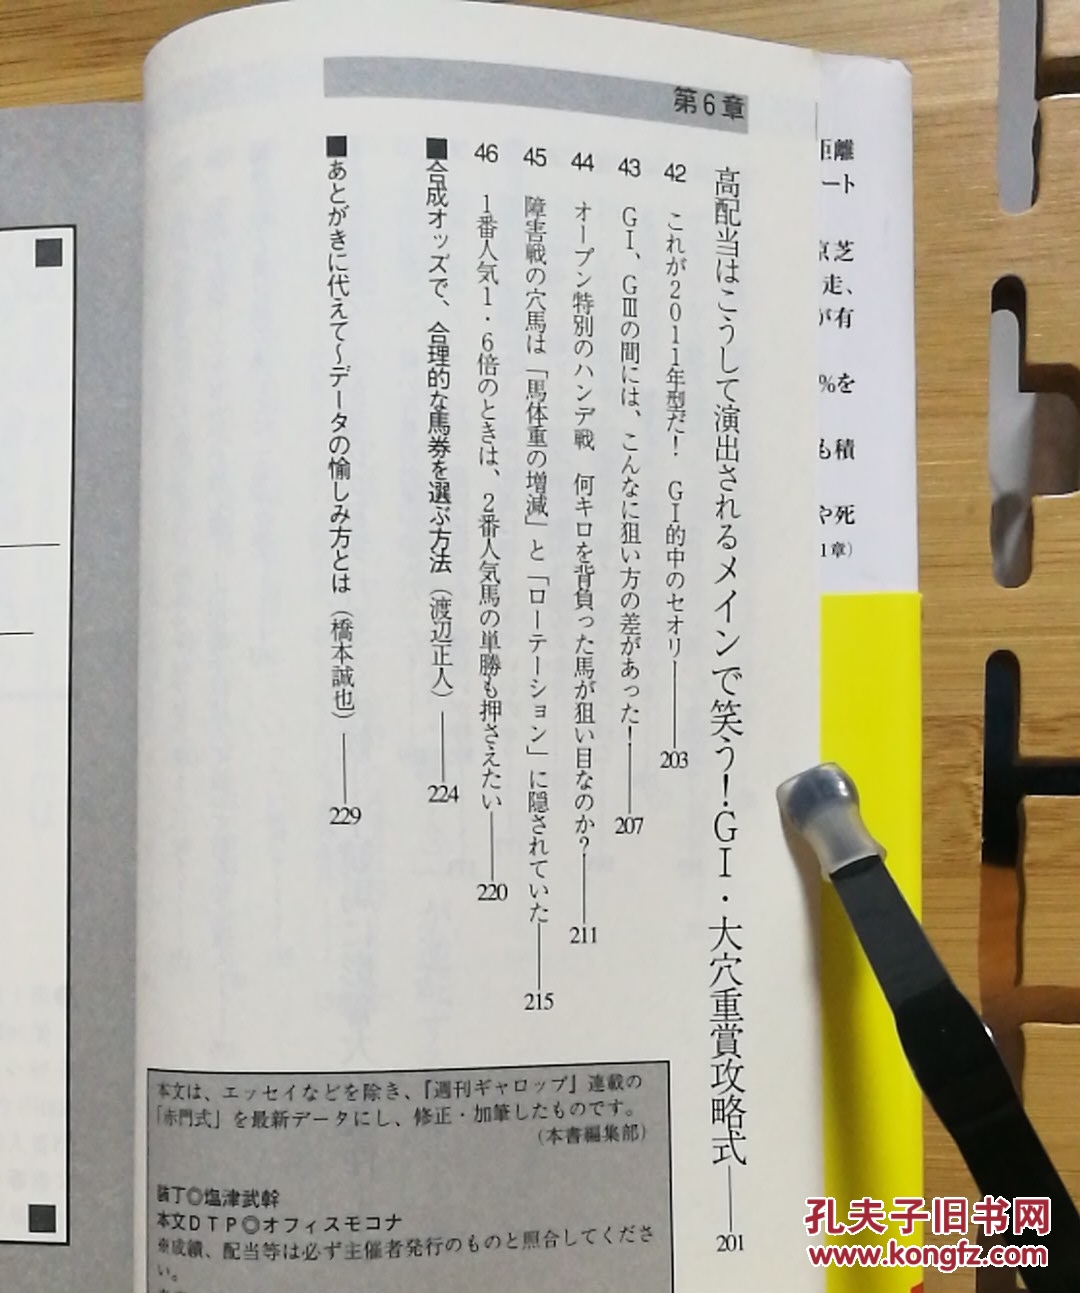 第6章
高配当はこうして演出されるメインで笑う!GⅠ・大穴重賞攻略式 201
42 これが2011年型だ! GⅠ的中のセオリー 203
43 GⅠ、GⅢの間には、こんなに狙い方の差があった! 207
44 オープン特別のハンデ戦 何キロを背負った馬が狙い目なのか? 211
45 障害戦の穴馬は「馬体重の増減」と「ローテーション」に隠されていた 215
46 1番人気1・6倍のときは、2番人気馬の単勝も押さえたい 220
■合成オッズで、合理的な馬券を選ぶ方法(渡辺正人) 224
■あとがきに代えて〜データの愉しみ方とは(橋本誠也) 229
本文は、エッセイなどを除き、『週刊ギャロップ』連載の
「赤門式」を最新データにし、修正・加筆したものです。
(本書編集部)
装丁◎塩津武幹
本文DTP◎オフィスモコナ
※成績、配当等は必ず主催者発行のものと照合してくださ
い。
距離
ート
京芝
走、
が有
%を
も積
や死
1章)
孔夫子旧书网
www.kongfz.com